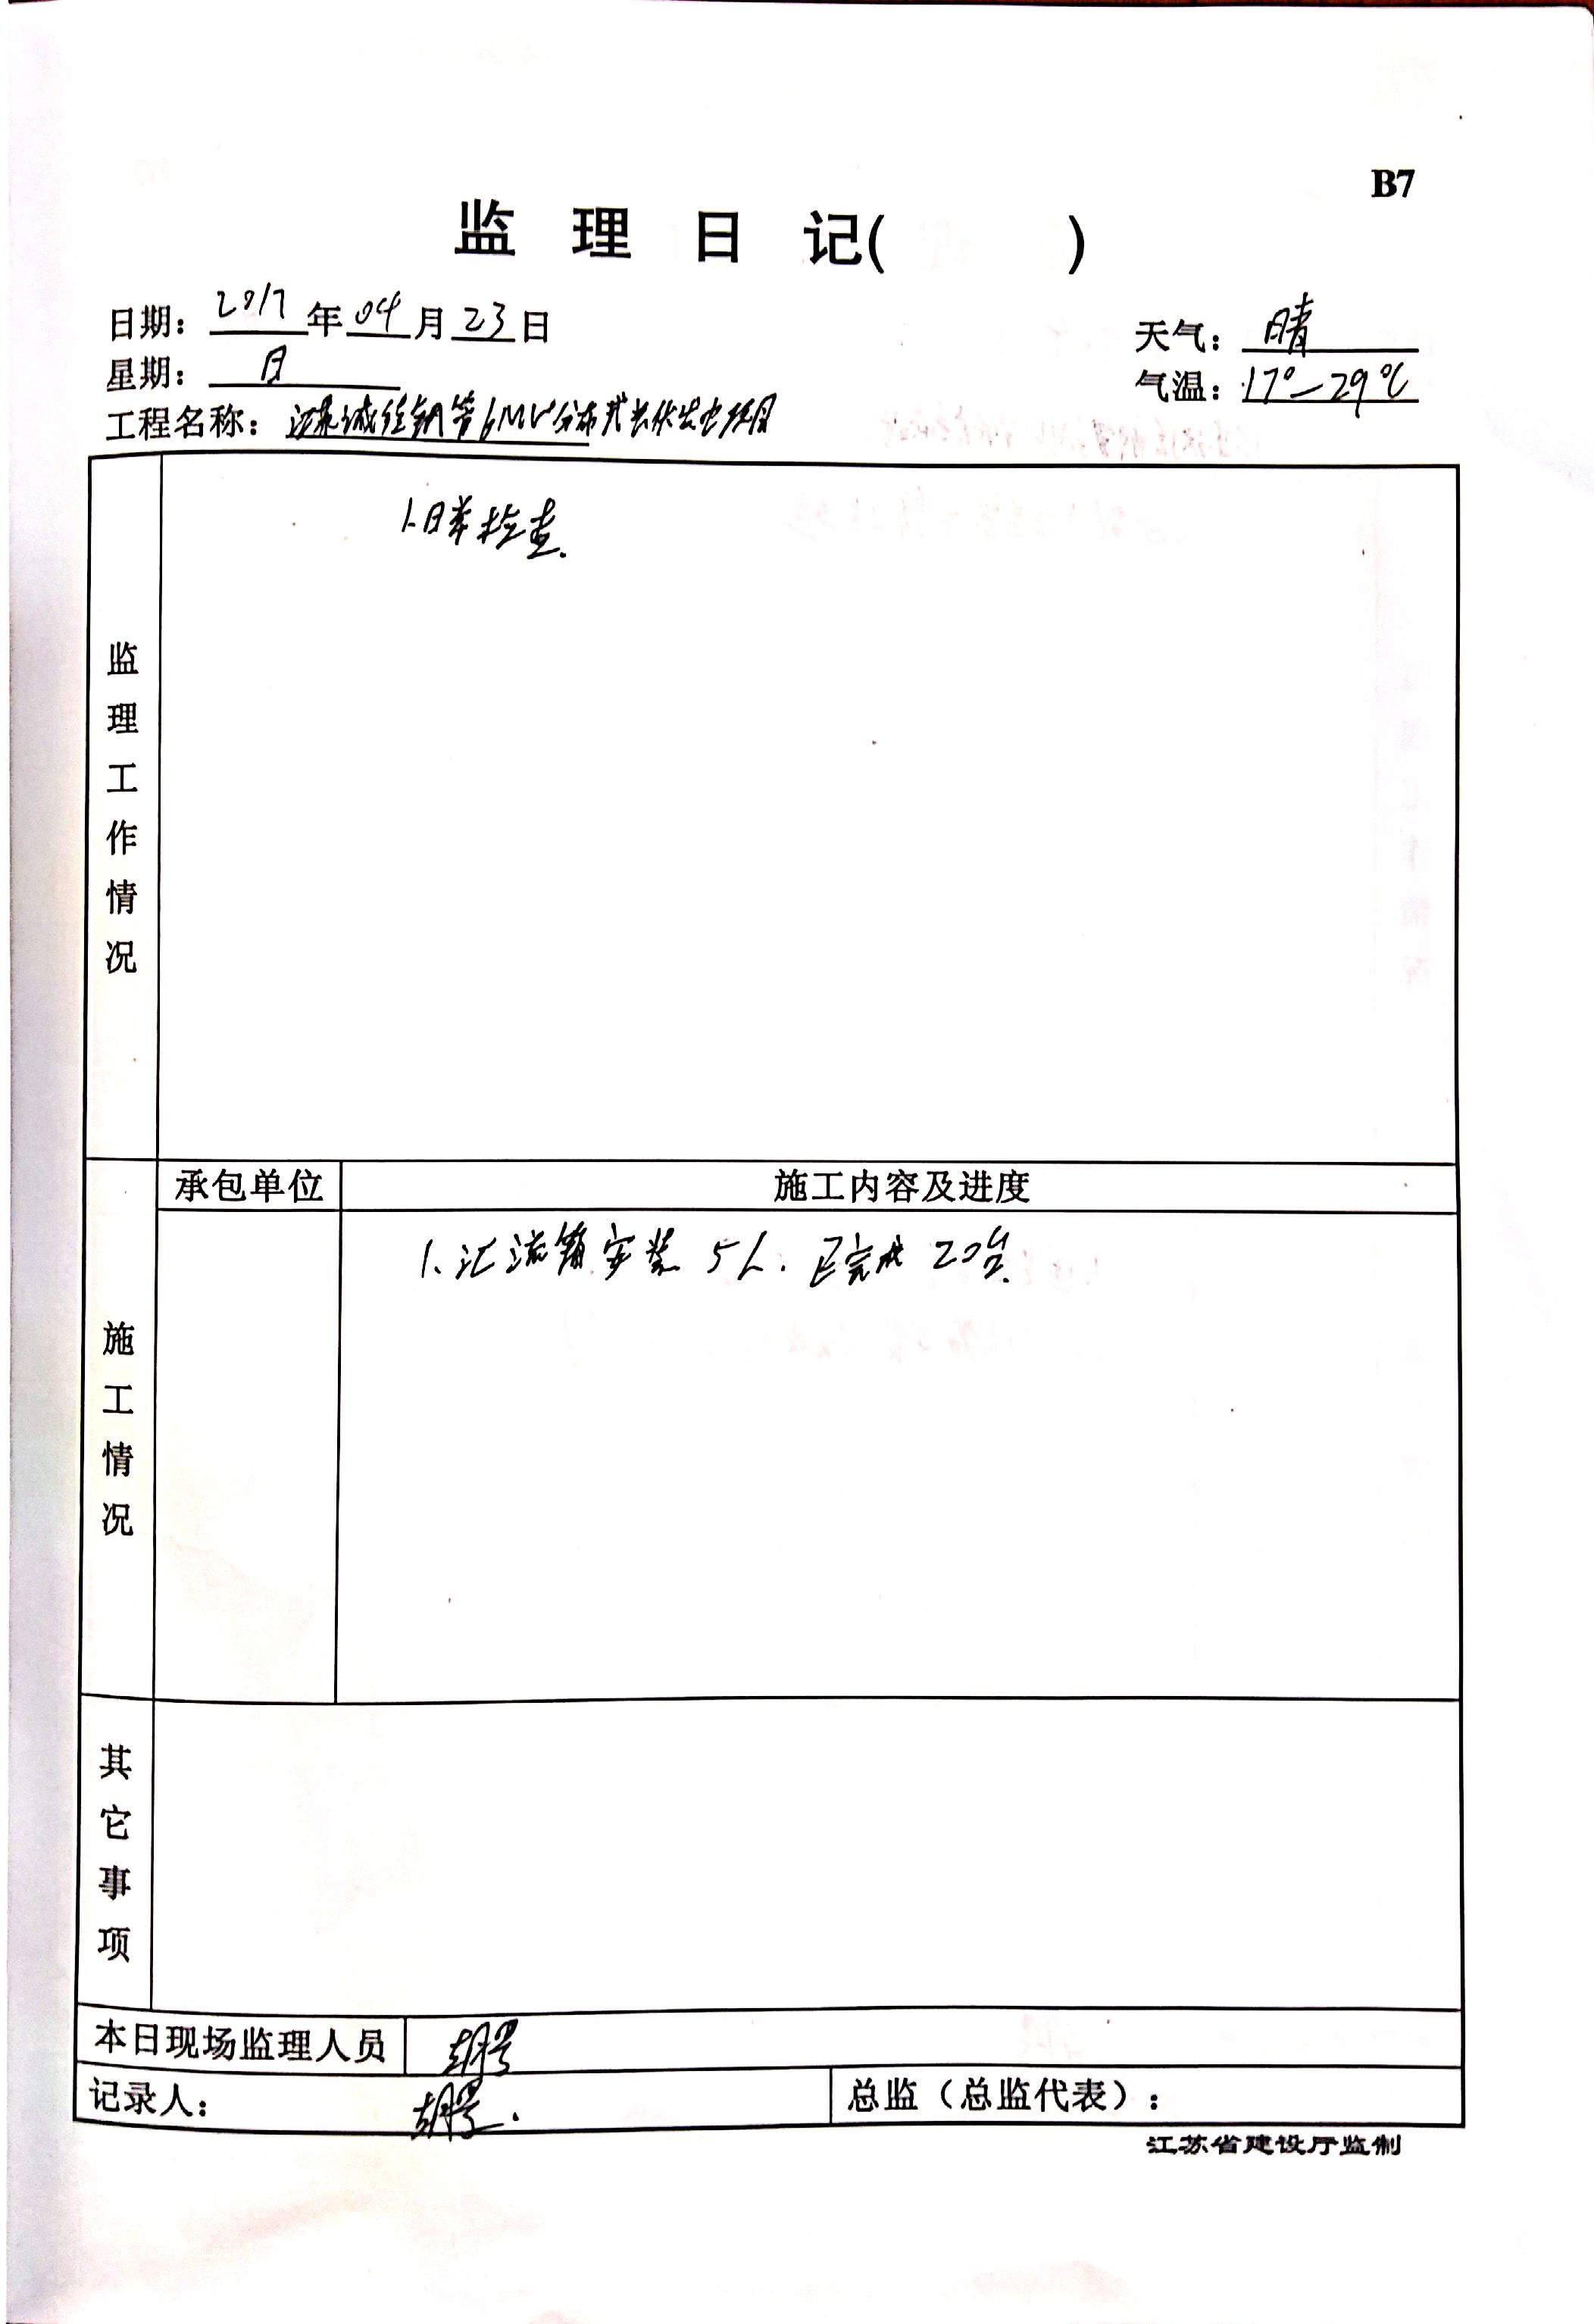 B7
监 理 日 记( )
日期: 2017 年 04 月 23 日
天气: 晴
星期: 日
气温: 17°-29℃
工程名称: 江苏诚佳钢管6MW分布式光伏发电项目
监理工作情况
1.日常检查.
施工情况
承包单位
施工内容及进度
1.汇流箱安装 5人.已完成20台.
其它事项
本日现场监理人员
记录人:
总监(总监代表):
江苏省建设厅监制